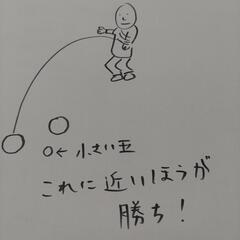 ←小さい玉
これに近いほうが
勝ち！